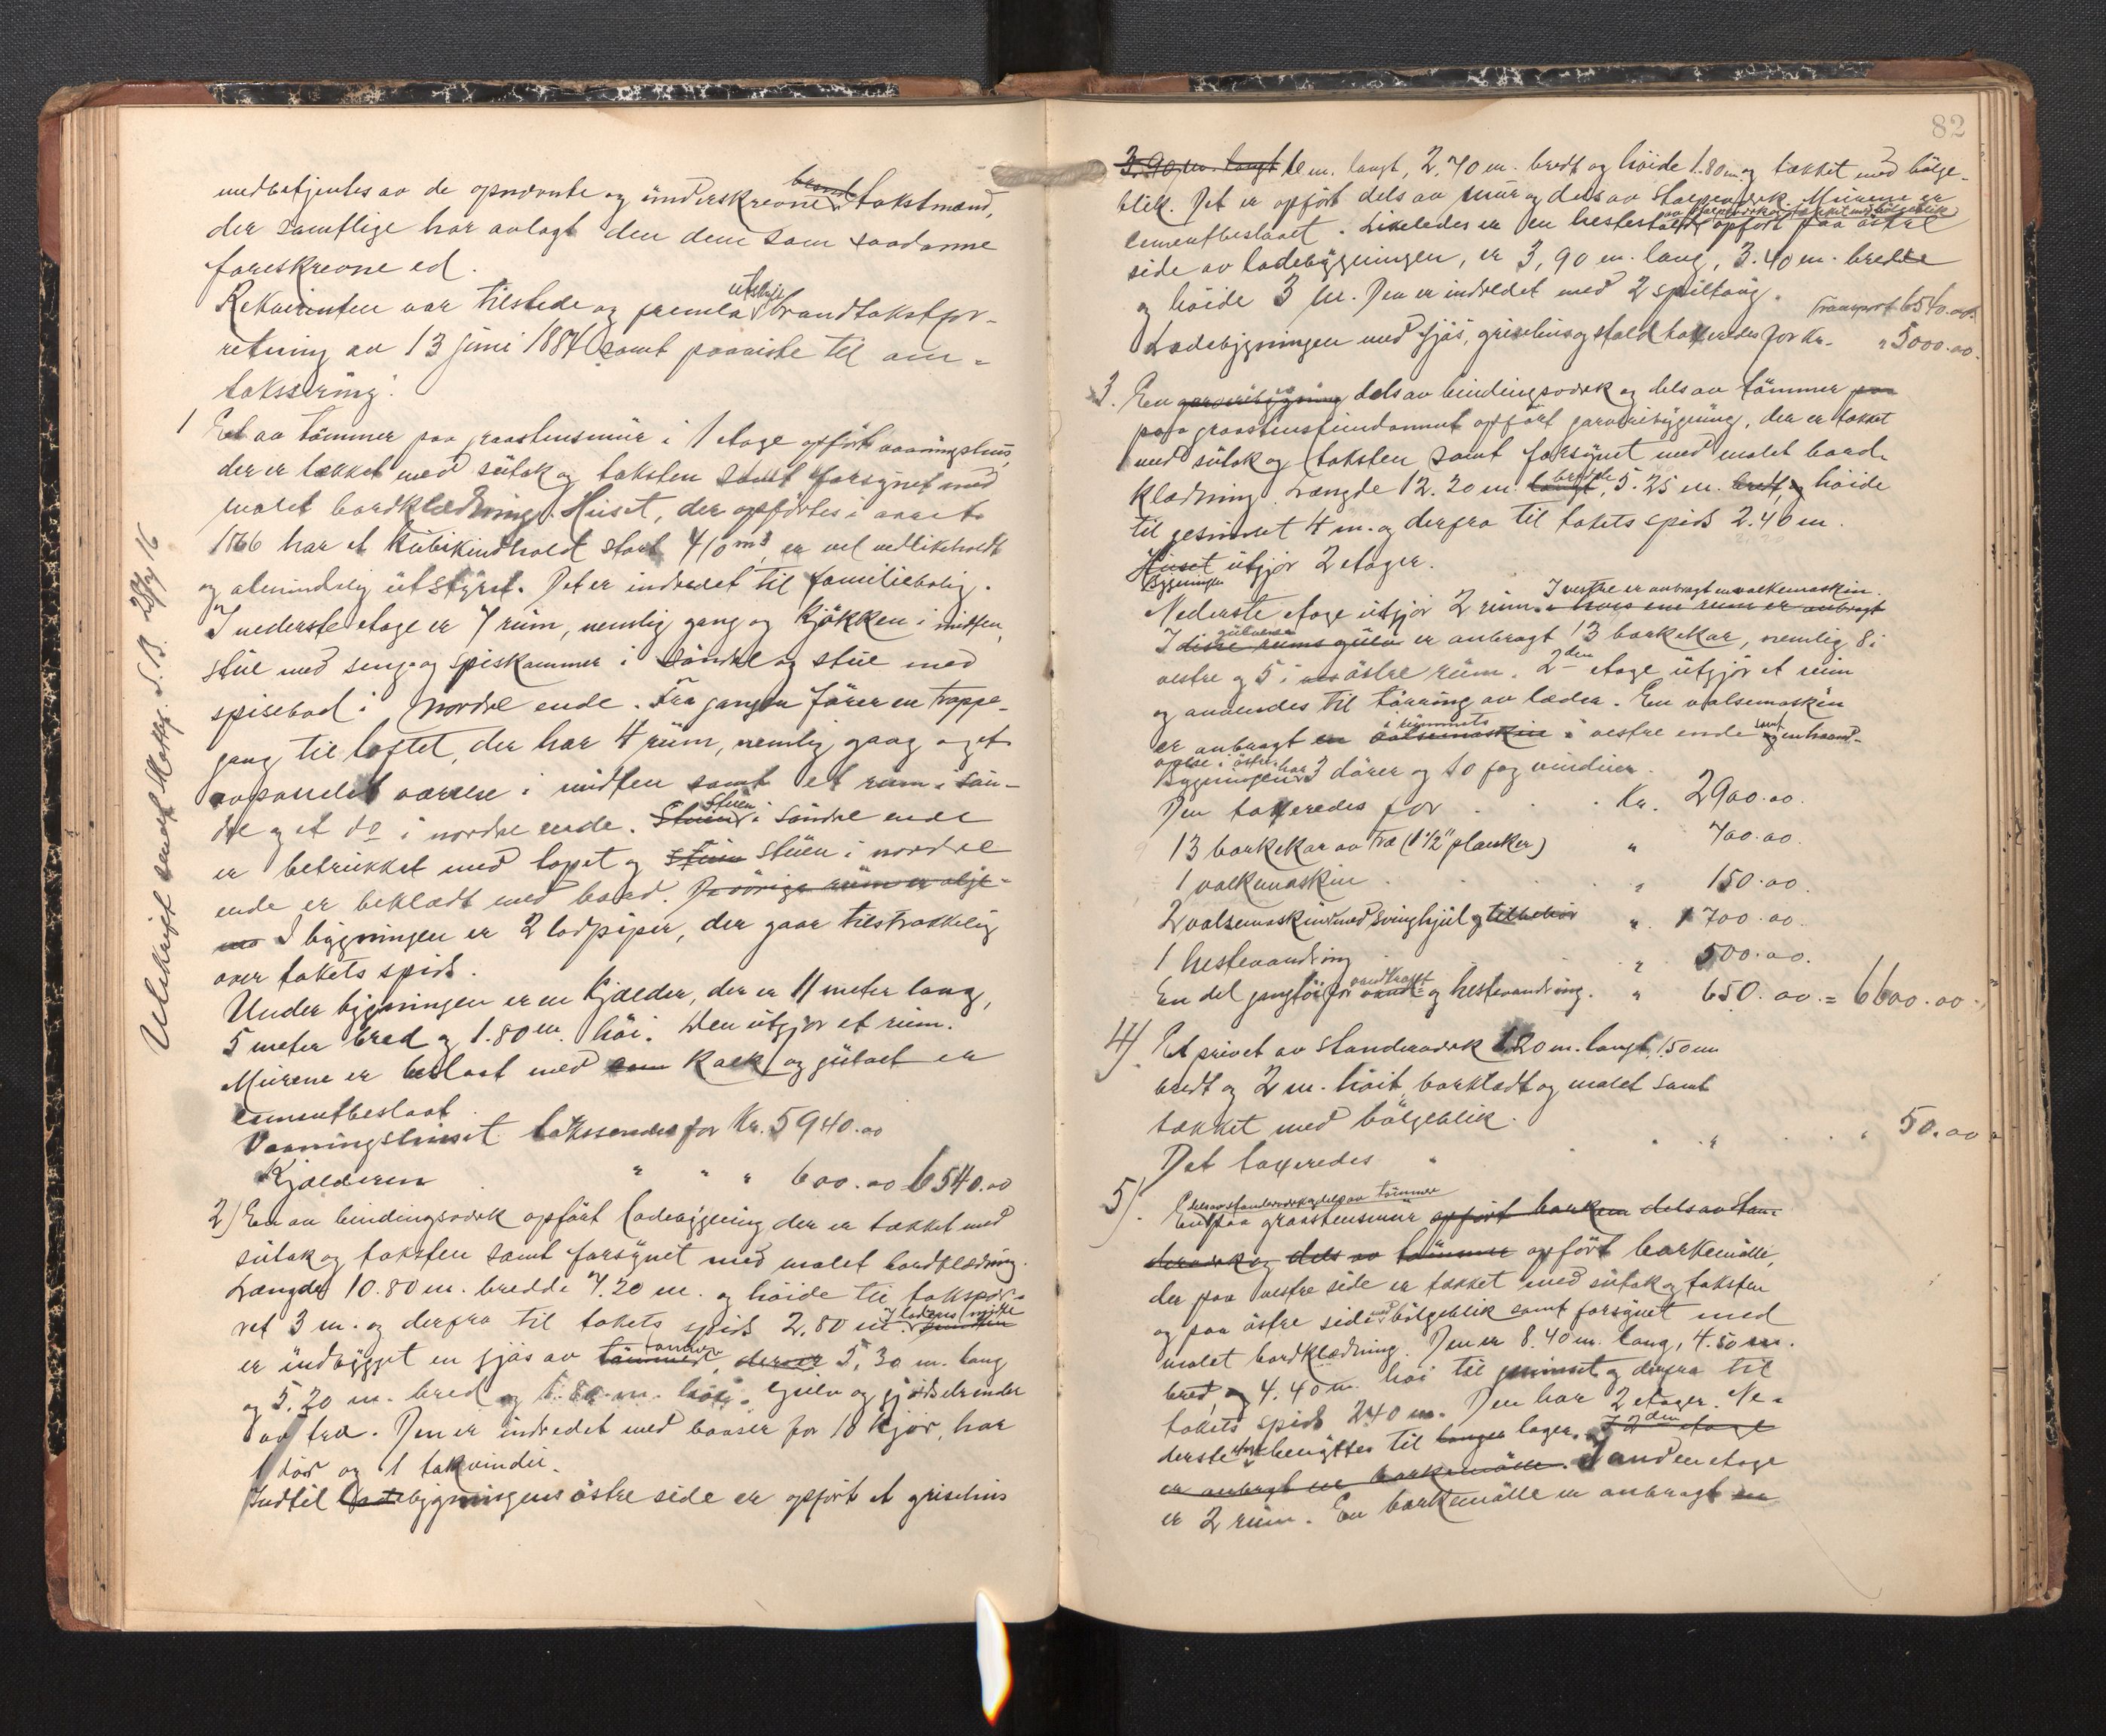 medbetjentes av de opnævnte og underskrevne brand takstmænd,
der samtlige har avlagt den dem som saadanne
foreskrevne ed.
Rekvirenten var tilstede og fremla utskrift brandtakstfor-
retning av 13 juni 1884 samt paaviste til om-
taksering:
1 Et av tömmer paa graastensmur i 1 etage opfört vaaningshus,
der er tækket med sutak og taksten samt forsynet med
malet bordklædning. Huset, der opförtes i aaret
1866 har et kubikindhold stort 410 m3, er vel vedlikeholdt
og almindelig utstyrt. Det er indredet til familiebolig.
I nederste etage er 7 rum, nemlig gang og kjökken i midten,
stue med seng- og spiskammer i söndre og stue med
spisebod i nordre ende. Fra gangen förer en trappe-
gang til loftet, der har 4 rum, nemlig gang og et
avpanelet værelse i midten samt et rum i sön-
dre og et do i nordre ende. Stuen i söndre ende
er betrukket med tapet og stuen i nordre
ende er beklædt med bord. De övrige rum er olje-
I bygningen er 2 lodpiper, der gaar tilstrækkelig
over takets spids.
Under bygningen er en kjælder, der er 11 meter lang,
5 meter bred og 1.80 m. höi. Den utgjör et rum.
Murene er beslaat med kalk og gulvet er
cementbeslaat.
Vaaningshuset takseredes for Kr. 5940.00
Kjælderen " " " 600.00 6540.00
2) En av bindingsverk opfört ladebygning der er tækket med
sutak og taksten samt forsynet med malet bordklædning.
Længde 10.80 m. bredde 7.20 m. og höide til takspær-
ret 3 m. og derfra til takets spids 2.80 m. I ladens midte
er indbygget en fjös av tömmer, 5.30 m. lang
og 5.20 m. bred og m. höi. Gulv og gjödselrender
av træ. Den er indredet med baaser for 10 kjör, har
1 dör og 1 takvindu.
Indtil bygningens östre side er opfört et grisehus
Utskrift sendt 28/7 16
82
3.90 m. langt m. langt, 2.40 m. bredt og höide 1.80 m. og tækket med bölge-
blik. Det er opfört dels av mur og dels av stolpeverk. Murene er
cementbeslaaet. Likeledes er en hestestald av stolpeverk og tækket med bölgeblik opfört paa östre
side av ladebygningen, er 3,90 m. lang, 3.40 m. bred
og höide 3 m. Den er indredet med 2 spiltaug. Transport 6540.00
Ladebygningen med fjös, grisehus og stald taxeredes for Kr. " 5000.00.
3. En garveribygning dels av bindingsverk og dels av tömmer paa
paa graastensfundament opfört garveribygning, der er tækket
med sutak og taksten samt forsynet med malet bord-
klædning. Længde 12.20 m. bredde 5.25 m. bredt, og höide
til gesimset 4 m. og derfra til takets spids 2.40 m.
Huset Bygningen utgjör 2 etager.
Nederste etage utgjör 2 rum. I vestre er anbragt en valkemaskin. i hvis ene rum er anbragt
I disse rums gulv gulvene er anbragt 13 barkekar, nemlig 8 i
vestre og 5 i östre rum. 2den etage utgjör et rum
og anvendes til törring av læder. En valsemaskin
er anbragt en valsemaskin i rummets vestre ende samt en haand-
valse i östre.
Bygningen har 3 dörer og 10 fag vinduer.
Den taxeredes for . . . Kr. 2900.00.
13 barkekar av træ (1 1/2" planker) " 700.00.
1 valkemaskin . . . " 150.00.
2 valsemaskiner med svinghjul og tilbehör " 1700.00.
1 hestevandring . . " 500.00.
En del gangtöi for vandkraft og hestevandring. " 650.00 = 6600.00
4) Et privet av standerverk 1.20 m. langt, 1.50 m
bredt og 2 m. höit, bordklædt og malet samt
tækket med bölgeblik.
Det taxeredes " . " . " 50.00
5). En dels av standerverk og dels av tömmer paa graastensmur opfört barkem dels av stan-
derverk og dels av tömmer opfört barkemölle,
der paa vestre side er tækket med sutak og taksten
og paa östre side med bölgeblik samt forsynet med
malet bordklædning. Den er 8.40 m. lang, 4.50 m.
bred, og 4.40 m. höi til gesimset og derfra til
takets spids 2.40 m. Den har 2 etager. Ne-
derste benyttes til lager. I 2den etage
er anbragt en barkemölle. I anden etage
er 2 rum. En barkemölle er anbragt